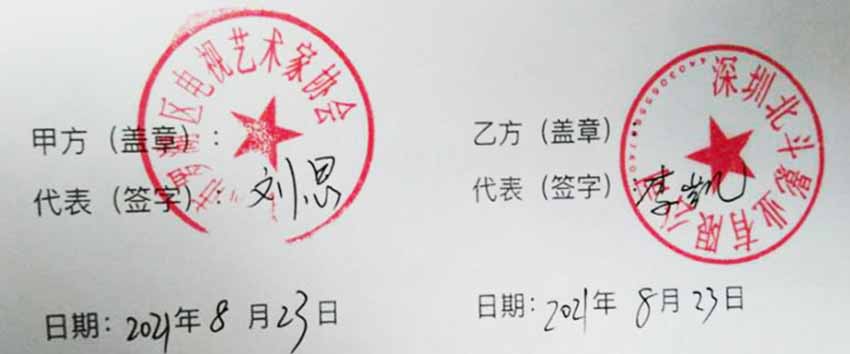 区电视艺术家协会
甲方（盖章）：
代表（签字）：刘思
日期：2021年8月23日
深圳北斗影业有限公司
乙方（盖章）
代表（签字）李凯
日期：2021年8月23日